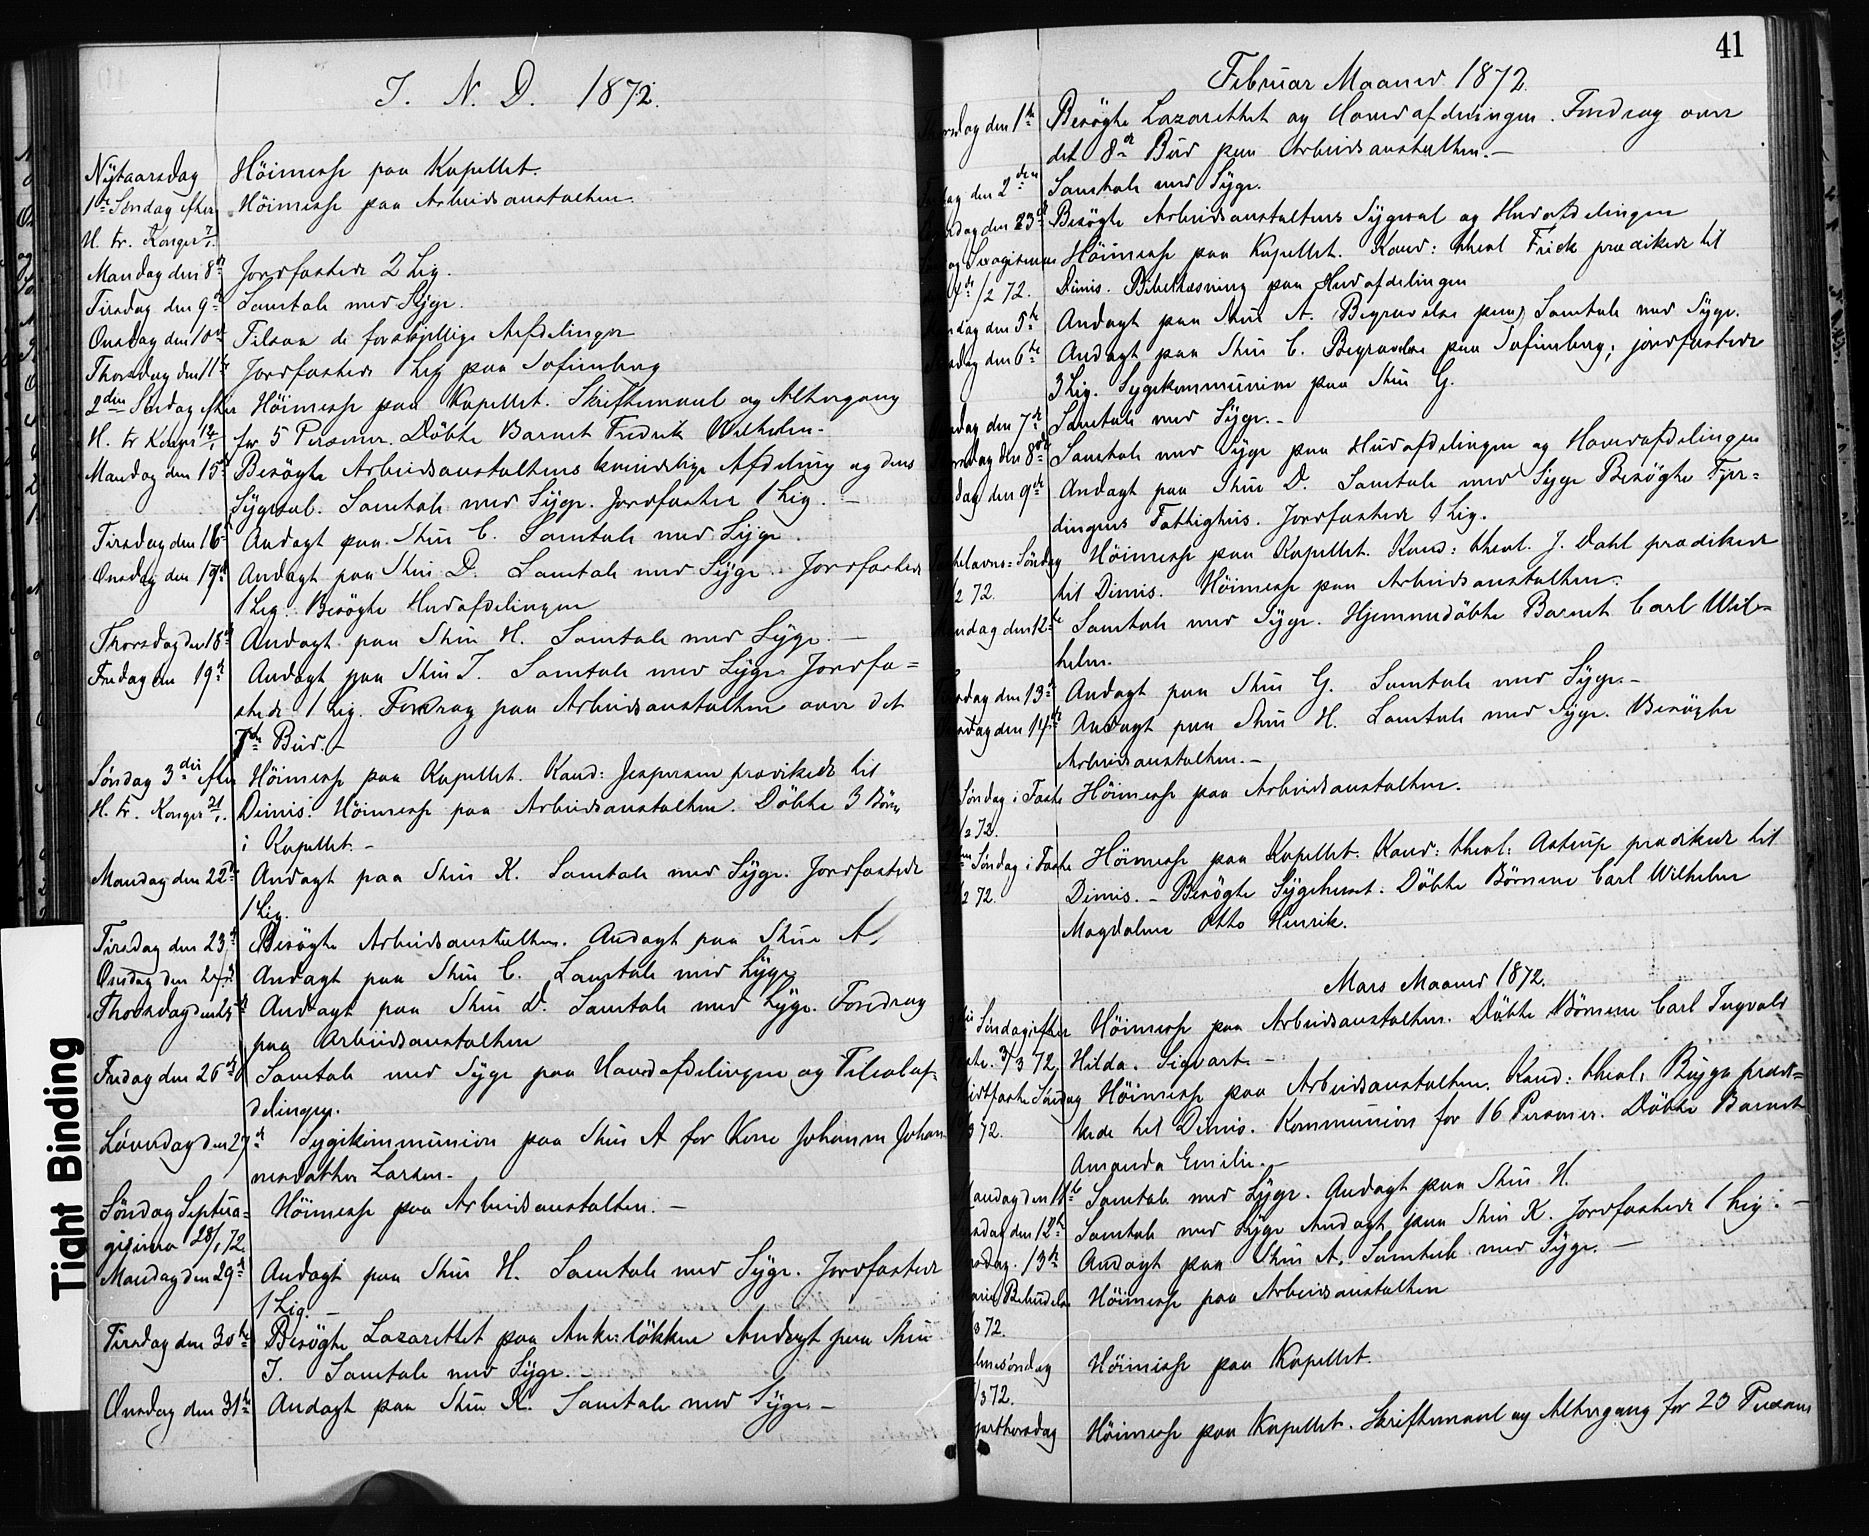 J. N. D. 1872.
Nytaarsdag Höimesse paa Kapellet.
1ste Søndag efter Höimesse paa Arbeidsanstalten.
H. tr. Konger 7/1.
Mandag den 8de Jordfæstede 2 Lig.
Tirsdag den 9de Samtale med Syge.
Onsdag den 10de Tilsaa de forskjellige Afdelinger
Thorsdag den 11te Jordfæstede 1 Lig paa Sofienberg
2den Søndag efter Höimesse paa Kapellet. Skriftemaal og Altergang
H. tr Konger 14/1 for 5 Personer. Döbte Barnet Fredrik Wilhelm.
Mandag den 15de Besögte Arbeidsanstaltens kvindelige Afdeling og dens
Sygesal. Samtale med Syge. Jordfæstede 1 Lig. –
Tirsdag den 16de Andagt paa Stue C. Samtale med Syge.
Onsdag den 17de Andagt paa Stue D. Samtale med Syge. Jordfæstede
1 Lig. Besögte Hudafdelingen
Thorsdag den 18de Andagt paa Stue H. Samtale med Syge. –
Fredag den 19de Andagt paa Stue I. Samtale med Syge. Jordfæ=
stede 1 Lig. Foredrag paa Arbeidsanstalten over det
7de Bud. –
Søndag 3die efter Höimesse paa Kapellet. Kand: Jespersen prædikede til
H. tr. Konger 21/1. Dimis. Höimesse paa Arbeidsanstalten. Döbte 3 Börn
i Kapellet. –
Mandag den 22de Andagt paa Stue K. Samtale med Syge. Jordfæstede
1 Lig.
Tirsdag den 23de Besögte Arbeidsanstalten. Andagt paa Stue A.
Onsdag den 24de Andagt paa Stue C. Samtale med Syge
Thorsdag den 25de Andagt paa Stue D. Samtale med Syge. Foredrag
paa Arbeidsanstalten
Fredag den 26de Samtale med Syge paa Hovedafdelingen og Filialaf-
delingen.
Løverdag den 27de Sygekommunion paa Stue A for Kone Johanne Johan
nesdatter Larsen. –
Søndag Septua= Höimesse paa Arbeidsanstalten. –
gesima 28/1 72.
Mandag den 29de Andagt paa Stue H. Samtale med Syge. Jordfæstede
1 Lig. –
Tirsdag den 30te Besögte Lazarettet paa Ankerlökken Andagt paa Stue
I. Samtale med Syge. –
Onsdag den 31te Andagt paa Stue K. Samtale med Syge. –
41
Februar Maaned 1872.
rsdag den 1ste Besögte Lazarettet og Hovedafdelingen. Foredrag over
det 8de Bud paa Arbeidsanstalten. –
ag den 2den Samtale med Syge.
rdag den 23de Besögte Arbeidsanstaltens Sygesal og Hudafdelingen
ag Sexagesima Höimesse paa Kapellet. Kand: theol Frick prædikede til
4de/2 72. Dimis. Bibellæsning paa Hudafdelingen
ndag den 5te Andagt paa Stue A. Begravelse paa Samtale med Syge.
rdag den 6te Andagt paa Stue C. Begravelse paa Sofienberg; jordfæstede
3 Lig. Sygekommunion paa Stue G.
dag den 7de Samtale med Syge. –
rsdag den 8de Samtale med Syge paa Hudafdelingen og Hovedafdelingen
dag den 9de Andagt paa Stue D. Samtale med Syge Besögte Fjer=
dingens Fattighus. Jordfæstede 1 Lig.
stelavns=Søndag Höimesse paa Kapellet. Kand: theol. J. Dahl prædikede
/2 72. til Dimis. Höimesse paa Arbeidsanstalten.
ndag den 12te Samtale med Syge. Hjemmedöbte Barnet Carl Wil-
helm.
rsdag den 13de Andagt paa Stue G. Samtale med Syge. –
sdag den 14de Andagt paa Stue H. Samtale med Syge. Besögte
Arbeidsanstalten. –
Søndag i Faste Höimesse paa Arbeidsanstalten.
/2 72.
Søndag i Faste Höimesse paa Kapellet. Kand: theol: Astrup prædikede til
/2 72. Dimis. – Besögte Sygehuset. Döbte Börnene Carl Wilhelm
Magdalene Otto Henrik.
Mars Maaned 1872.
Søndag i efter Höimesse paa Arbeidsanstalten. Döbte Börnene Carl Ingvald
3/3 72. Hilda. Sigvart. –
idtfaste Søndag Höimesse paa Arbeidsanstalten. Kand: theol: Bugge prædi=
3 72. kede til Dimis. Kommunion for 16 Personer. Döbte Barnet
Amanda Emilie. –
Mandag den 11te Samtale med Syge. Andagt paa Stue H.
rsdag den 12te Samtale med Syge Andagt paa Stue K. Jordfæstede 1 Lig. –
nsdag. 13de Andagt paa Stue A. Samtale med Syge. –
Marie Bebudelse Höimesse paa Arbeidsanstalten
3 72.
almesöndag Höimesse paa Kapellet.
/3 72.
kjærthorsdag Höimesse paa Kapellet. Skriftemaal og Altergang for 20 Personer
Tight Binding